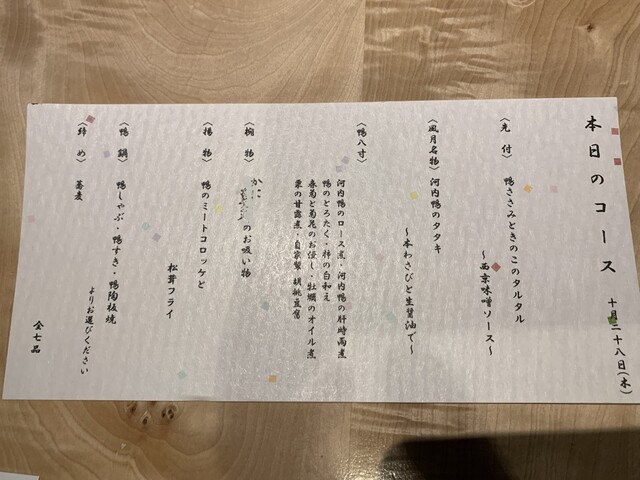 本日のコース
十月二十八日(木)
〈先付〉 鴨ささみときのこのタルタル
～西京味噌ソース～
〈風月名物〉 河内鴨のタタキ
～本わさびと生醤油で～
〈鴨八寸〉
河内鴨のロース煮・河内鴨の肝時雨煮
鴨のとろたく・柿の白和え
春菊と菊花のお浸し・牡蠣のオイル煮
栗の甘露煮・自家製 胡桃豆腐
〈椀物〉 かに のお吸い物
〈揚物〉 鴨のミートコロッケと
松茸フライ
〈鴨鍋〉 鴨しゃぶ・鴨すき・鴨陶板焼
よりお選びください
〈締め〉 蕎麦
全七品